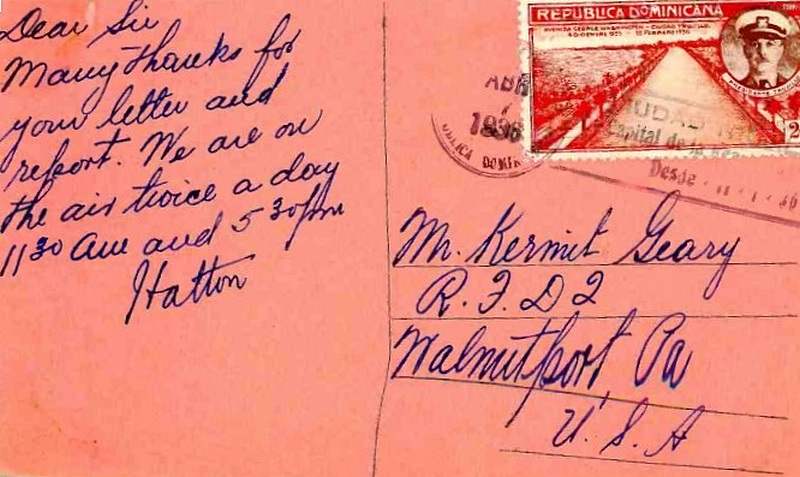 Dear Sir
Many thanks for
your letter and
report. We are on
the air twice a day
1130 am and 5 30 pm
Hatton
REPUBLICA DOMINICANA
AVENIDA GEORGE WASHINGTON - CIUDAD TRUJILLO
PRESIDENTE TRUJILLO
2
ABR
1936
BLICA DOMIN
CIUDAD
Capital de la
Desde
Mr. Kermit Geary
R. F. D 2
Walnutport, Pa
U. S. A